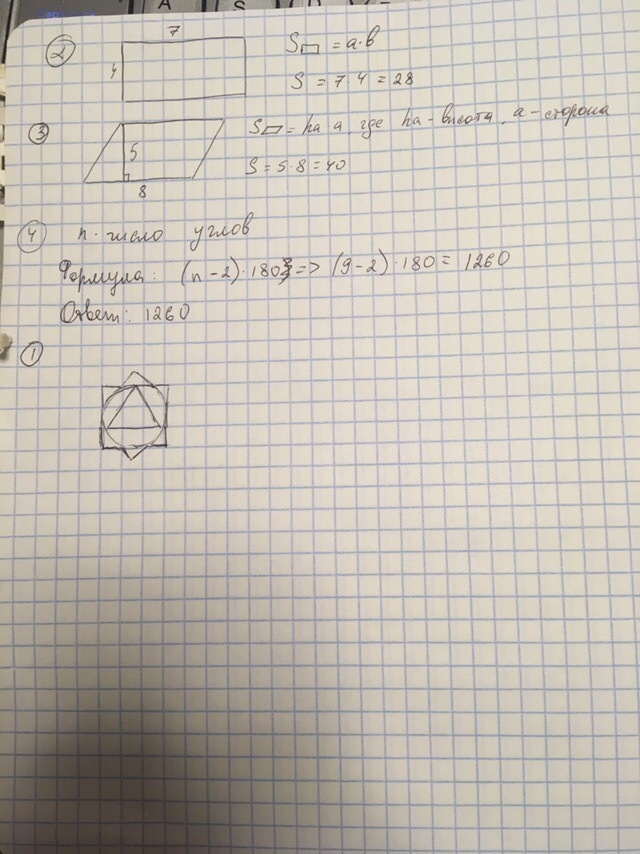 A S D
2
7
4
S▭ = a·b
S = 7 4 = 28
3
5
8
S▱ = ha a, где ha - высота, a - сторона
S = 5·8 = 40
4 n - число углов
Формула: (n - 2) · 180 => (9 - 2) · 180 = 1260
Ответ: 1260
1